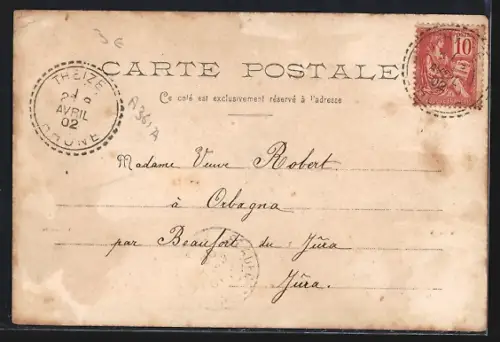 3 €
CARTE POSTALE
Ce coté est exclusivement réservé à l'adresse
THEIZE
AVRIL
02
RHONE
A361A
10
02
Madame Veuve Robert.
à Orbagna
par Beaufort du Jura
Jura.